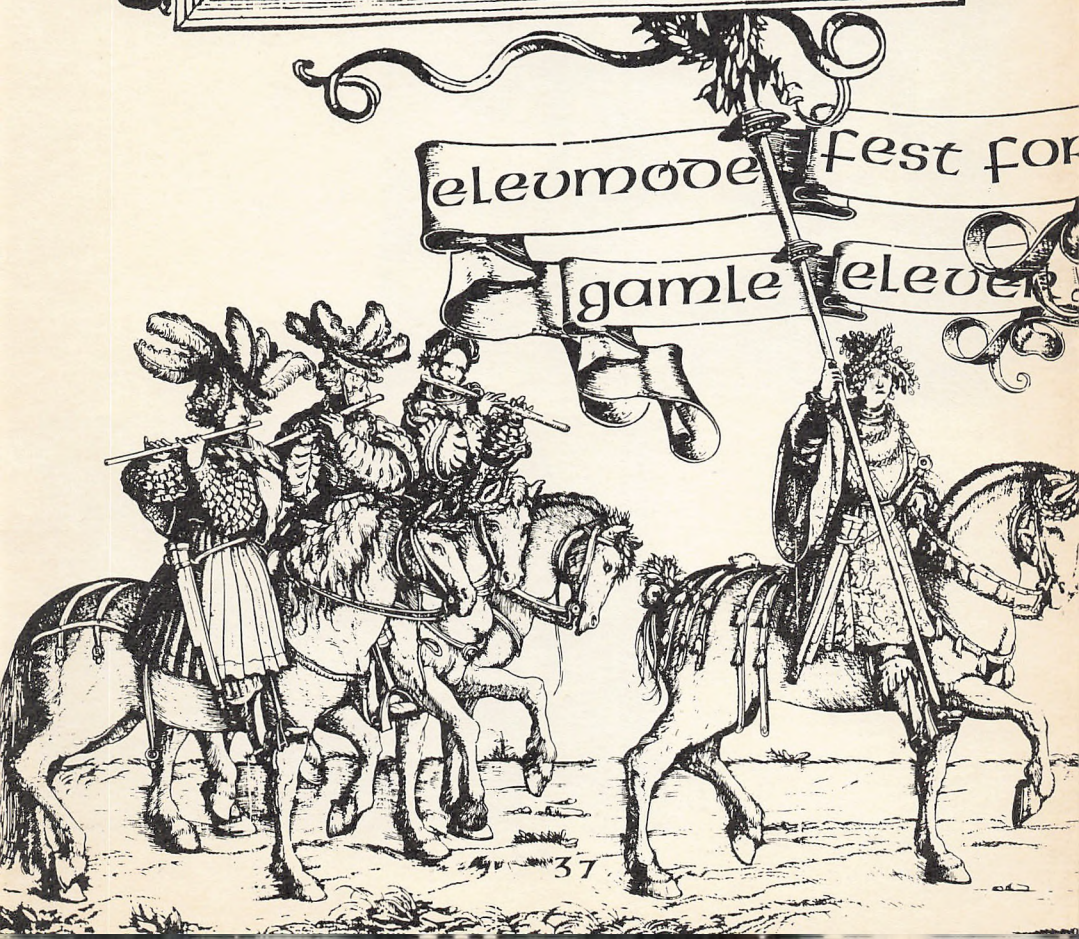 elevmøde fest for
gamle elever
37